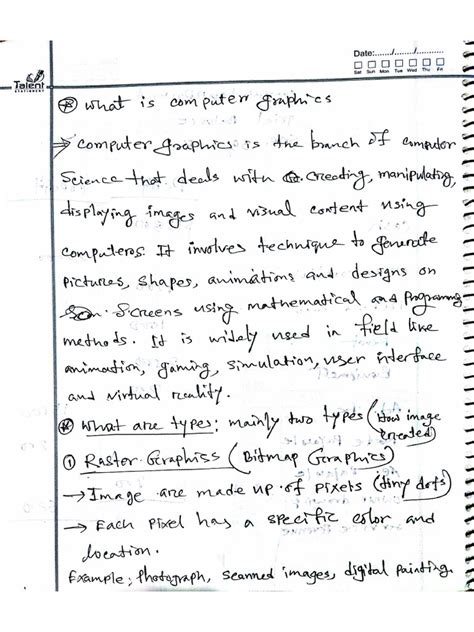 Date:....../....../............
Sat Sun Mon Tue Wed Thu Fri
Talent
What is computer graphics
→ Computer graphics is the branch of computer
Science that deals with creading, manipulating,
displaying images and visual content using
computeros. It involves technique to generate
pictures, shapes, animations and designs on
Screens using mathematical and Programming
methods. It is widely used in field like
animation, gaming, simulation, user interface
and virtual reality.
What are types: mainly two types (How image
created)
① Raster Graphiss (Bitmap Graphics)
→ Image are made up of pixels (tiny dots)
→ Each pixel has a specific color and
location.
Example: photograph, scanned images, digital painting.